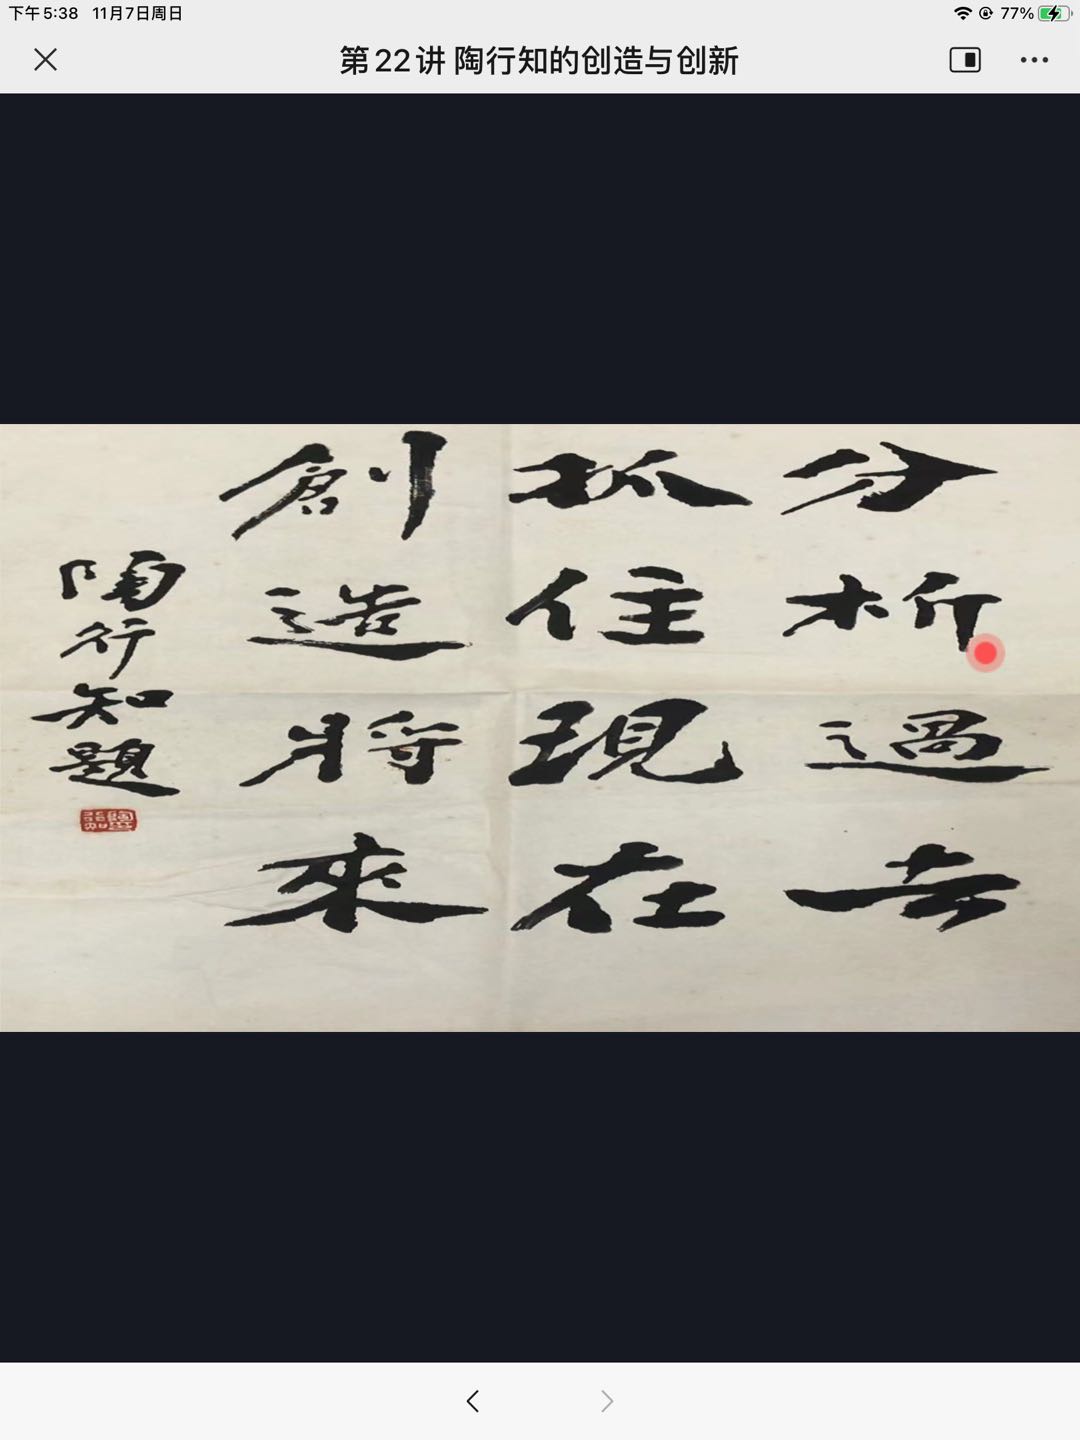 下午5:38 11月7日周日 77%
第22讲 陶行知的创造与创新
分析過去
抓住現在
創造將來
陶行知題